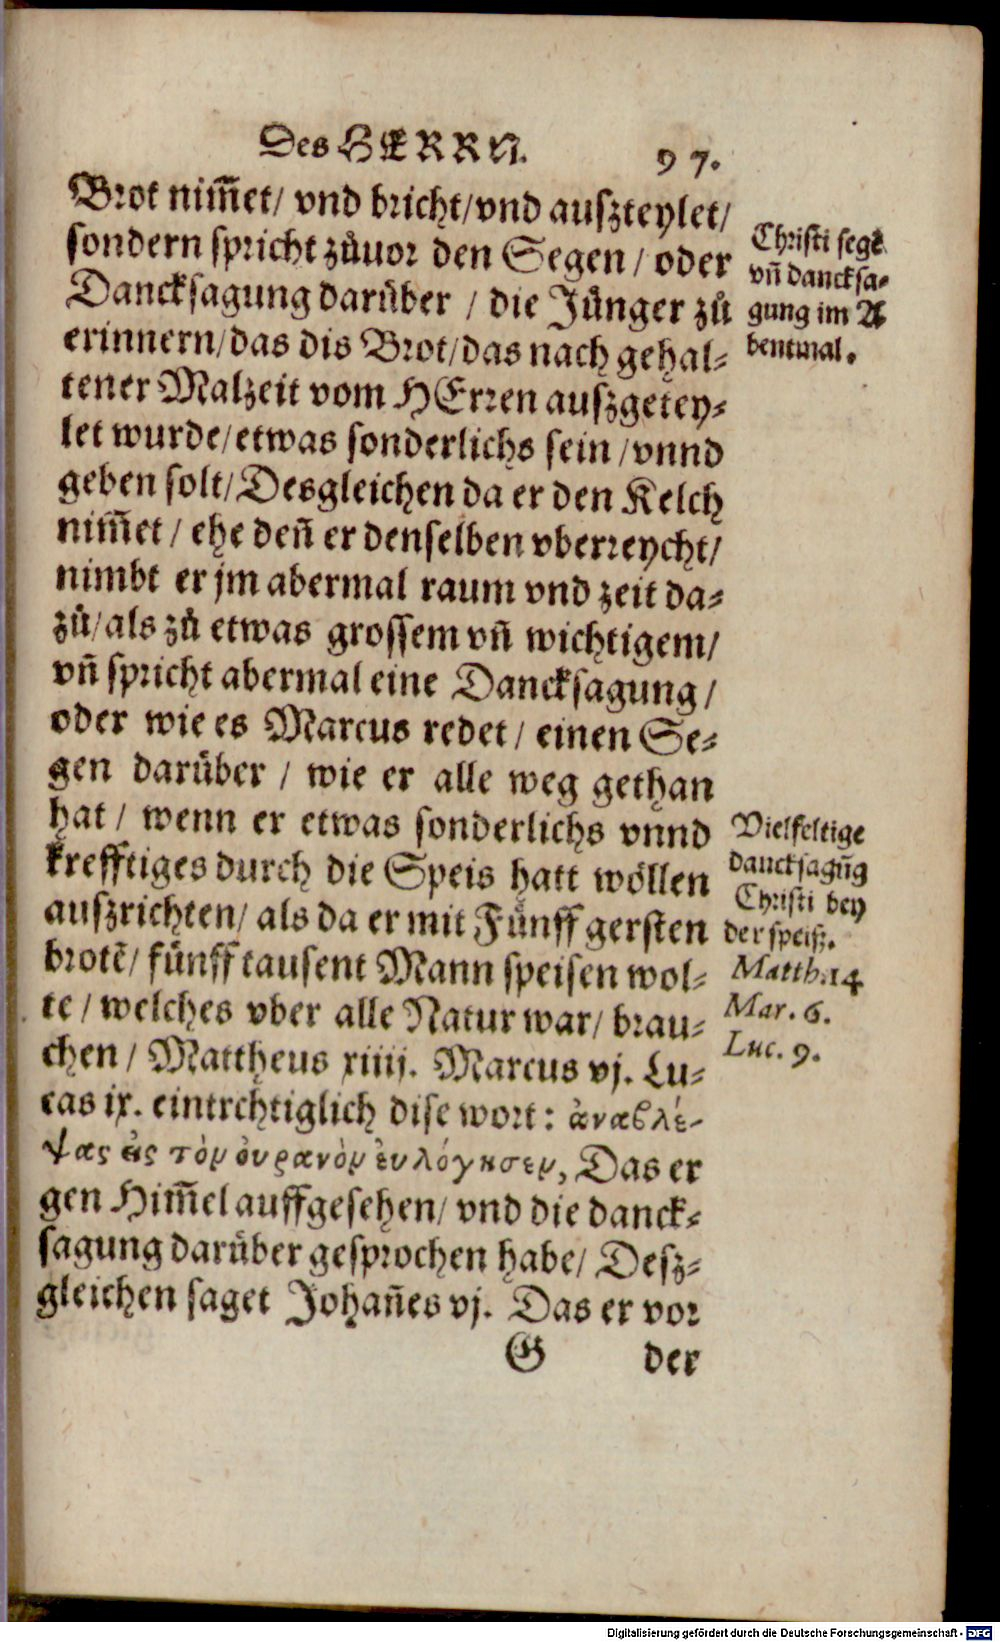 Des HERRN. 97.
Brot nim̃et/ vnd bricht/vnd auszteylet/
sondern spricht zůuor den Segen / oder
Dancksagung darüber / die Jünger zů
erinnern/das dis Brot/das nach gehal-
tener Malzeit vom HErren auszgetey-
let wurde/etwas sonderlichs sein /vnnd
geben solt/ Desgleichen da er den Kelch
nim̃et / ehe deñ er denselben vberreycht/
nimbt er jm abermal raum vnd zeit da-
zů/als zů etwas grossem vñ wichtigem/
vñ spricht abermal eine Dancksagung /
oder wie es Marcus redet / einen Se-
gen darüber / wie er alle weg gethan
hat / wenn er etwas sonderlichs vnnd
krefftiges durch die Speis hatt wöllen
auszrichten/ als da er mit Fünff gersten
brotẽ/ fünff tausent Mann speisen wol-
te / welches vber alle Natur war/ brau-
chen / Mattheus xiiij. Marcus vj. Lu-
cas ix. eintrchtiglich dise wort: ἀναβλέ-
ψας εἰς τὸν ὀυρανὸν ἐυλόγησεν, Das er
gen Him̃el auffgesehen/ vnd die danck-
sagung darüber gesprochen habe/ Desz-
gleichen saget Johañes vj. Das er vor
G der
Christi segẽ
vñ dancksa-
gung im A
bentmal.
Vielfeltige
dancksagũg
Christi bey
der speisz.
Matth.14
Mar. 6.
Luc. 9.
Digitalisierung gefördert durch die Deutsche Forschungsgemeinschaft - DFG